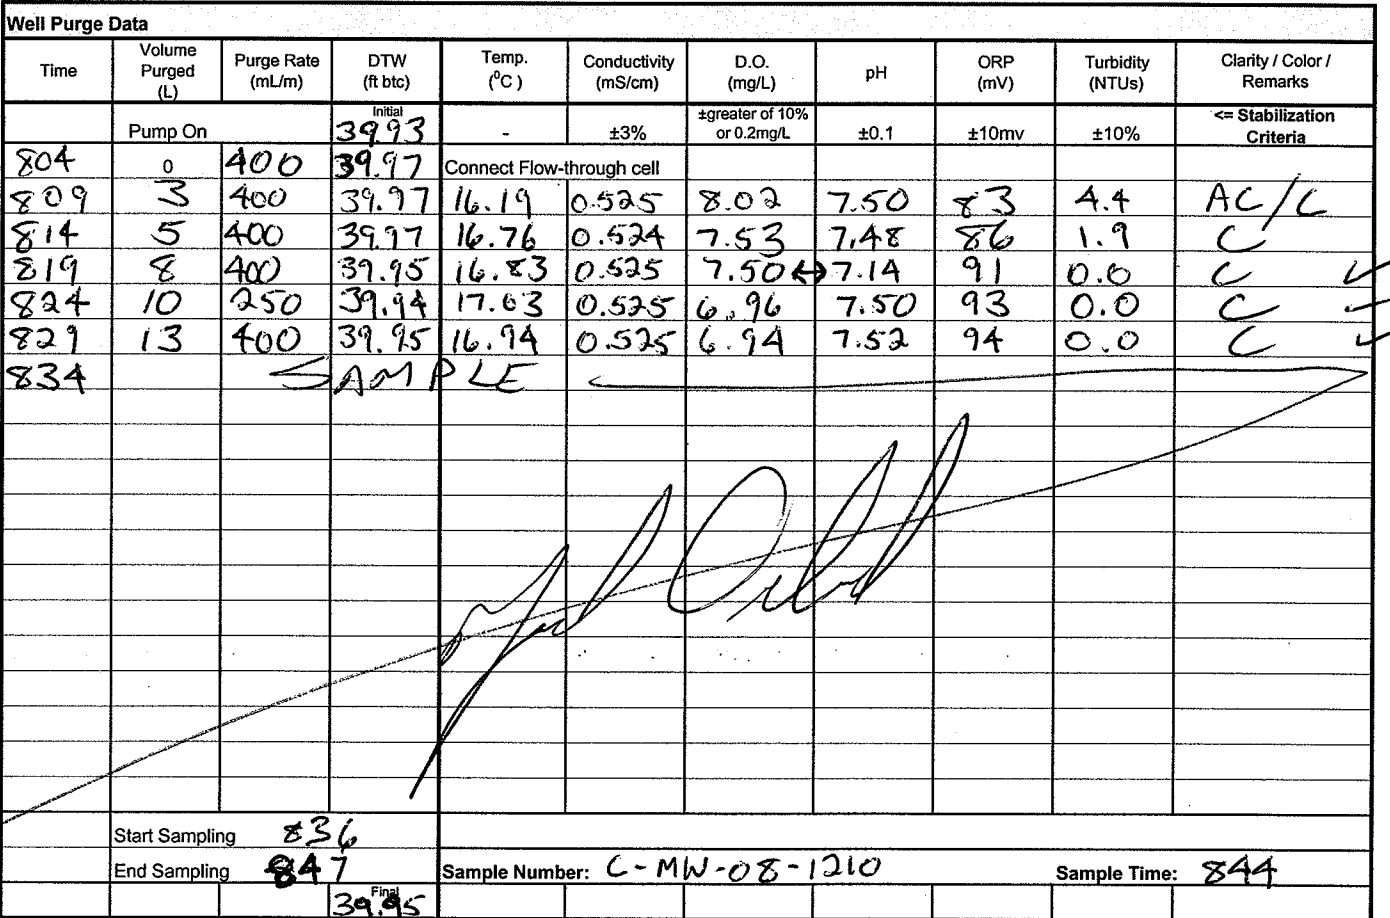 Well Purge Data
Time Volume Purged (L) Purge Rate (mL/m) DTW (ft btc) Temp. (⁰C ) Conductivity (mS/cm) D.O. (mg/L) pH ORP (mV) Turbidity (NTUs) Clarity / Color / Remarks
Pump On Initial 39.93 - ±3% ±greater of 10% or 0.2mg/L ±0.1 ±10mv ±10% <= Stabilization Criteria
804 0 400 39.97 Connect Flow-through cell
809 3 400 39.97 16.19 0.525 8.02 7.50 83 4.4 AC/C
814 5 400 39.97 16.76 0.524 7.53 7.48 86 1.9 C
819 8 400 39.95 16.83 0.525 7.50 ↔ 7.14 91 0.0 C ✓
824 10 250 39.94 17.03 0.525 6.96 7.50 93 0.0 C ✓
829 13 400 39.95 16.94 0.525 6.94 7.52 94 0.0 C ✓
834 SAMPLE
Start Sampling 836
End Sampling 847 Sample Number: C-MW-08-1210 Sample Time: 844
Final 39.95